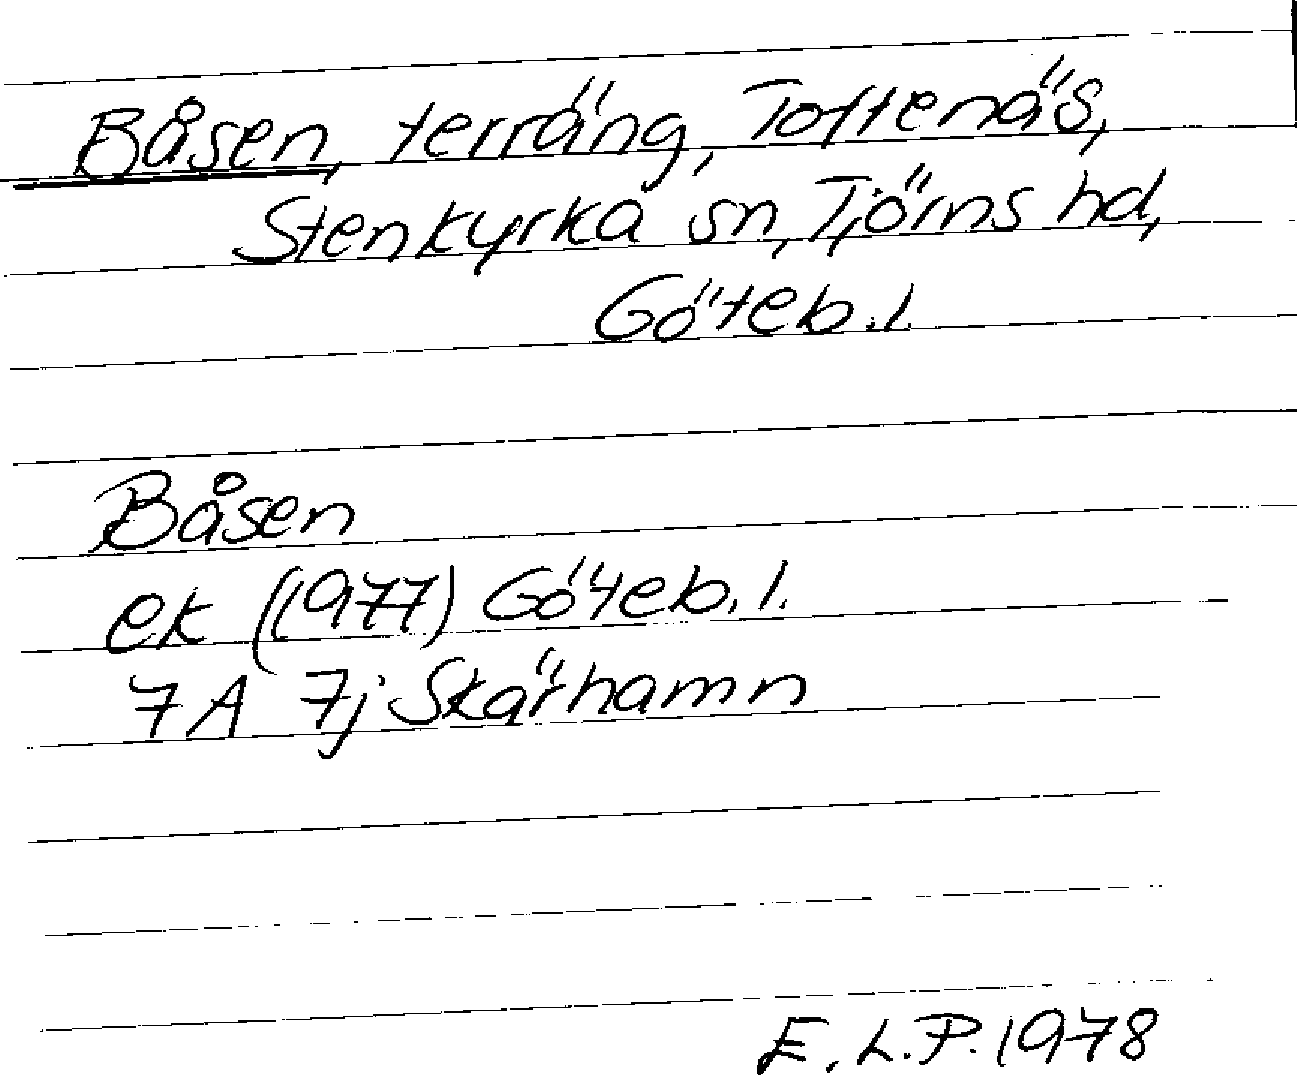 Båsen, terräng, Toftenäs,
Stenkyrka sn, Tjörns hd,
Göteb.l.
Båsen
ek (1977) Göteb.l.
7A 7j Skärhamn
E.L.P. 1978